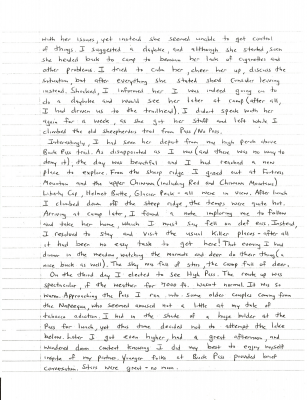 with her issues, yet instead she seemed unable to get control
of things. I suggested a dayhike, and although she started, soon
she headed back to camp to bemoan her lack of cigarettes and
other problems. I tried to calm her, cheer her up, discuss the
situation, but after everything she stated she'd consider leaving
instead. Shocked, I informed her I was indeed going in to
do a dayhike and would see her later at camp (after all,
I had driven us to the trailhead). I didn't speak with her
again for a week, as she got her stuff and left while I
climbed the old sheepherders trail from Pass / No Pass.
Interestingly, I had seen her depart from my high perch above
Buck Pass trail. As disappointed as I was (and there was no way to
deny it), the day was beautiful and I had reached a new
place to explore. From the sharp ridge I gazed out at Fortress
Mountain and the upper Chiwawa (including Red and Chiwawa Mountains)
Liberty Cap, Helmet Butte, Glacier Peak - all were in view. After lunch
I climbed down off the steep ridge, the temps were quite hot.
Arriving at camp later, I found a note imploring me to follow
and take her home, which I must say fell on deaf ears. Instead,
I resolved to stay and visit the usual killer places - after all
it had been no easy task to get here! That evening I had
dinner in the meadow, watching the marmots and deer do their thing (a
nice buck as well). The sky was full of stars, the camp full of deer.
On the third day I elected to see High Pass. The route up was
spectacular, if the weather for 7000 ft. wasn't normal. It was so
warm. Approaching the Pass I ran into some older couples coming from
the Napeequa, who seemed amused at a little at my tale of
tobacco addiction. I hid in the shade of a huge boulder at the
Pass for lunch, yet this time decided not to attempt the lake
below. Later I got even higher, had a great afternoon, and
wandered down content knowing I did my best to enjoy myself
inspite of my partner. Younger folks at Buck Pass provided brief
conversation. Stars were great - no moon.